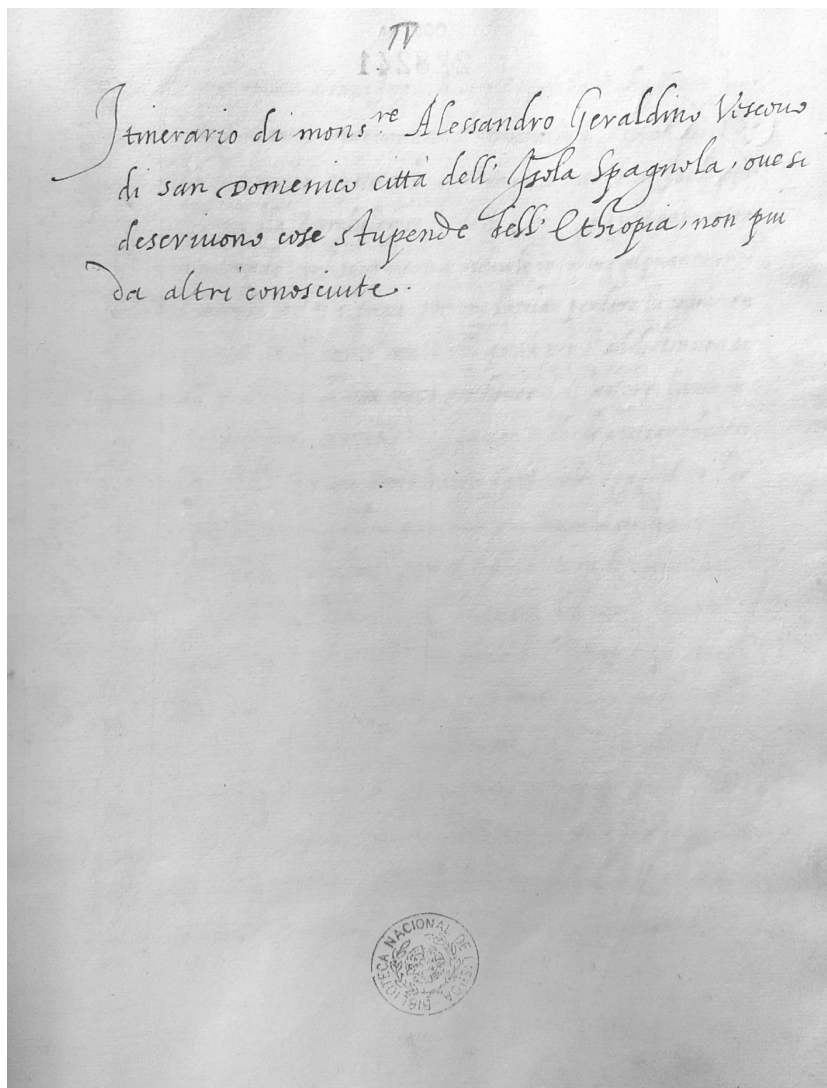 IV
Itinerario di mons.re Alessandro Geraldino Vescouo
di san Domenico città dell' Isola Spagnola, oue si
descriuono cose stupende dell' Ethiopia, non piu
da altri conosciute.
BIBLIOTECA NACIONAL DE LISBOA